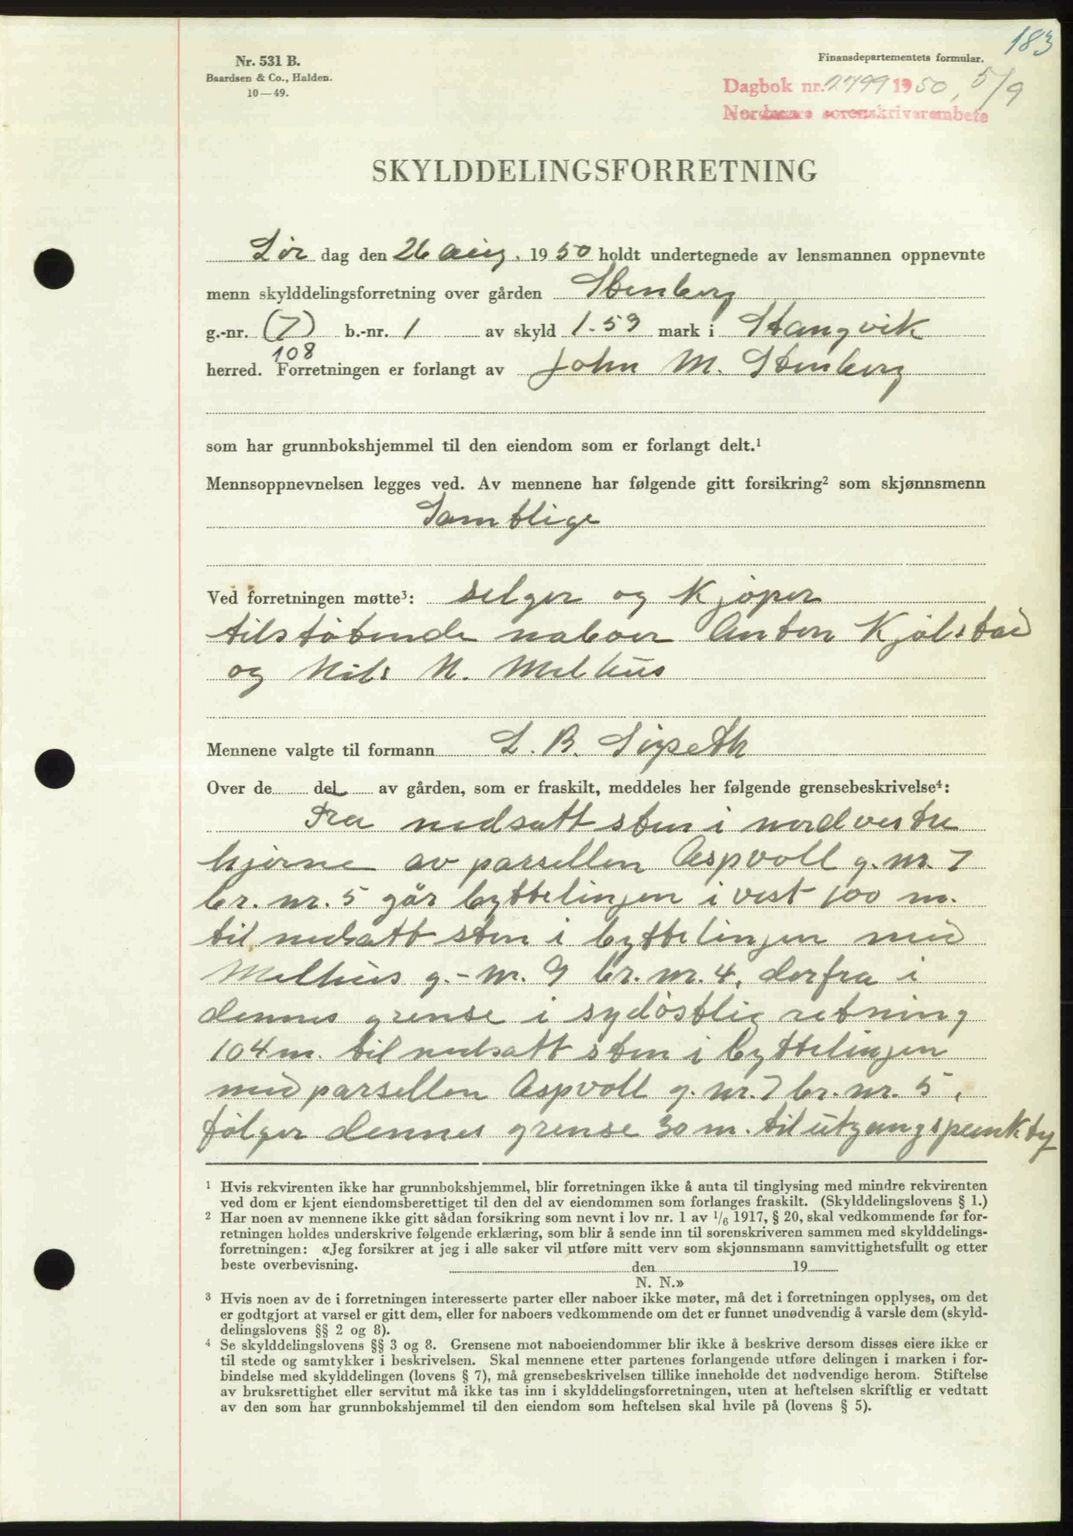 183
Nr. 531 B.
Baardsen & Co., Halden.
10—49.
Finansdepartementets formular.
Dagbok nr. 2799 1950, 5/9
Nordmøre sorenskriverembete
SKYLDDELINGSFORRETNING
Lør dag den 26 aug. 1950 holdt undertegnede av lensmannen oppnevnte
menn skylddelingsforretning over gården Stenberg
g.-nr. (7) b.-nr. 1 av skyld 1-59 mark i Stangvik
108
herred. Forretningen er forlangt av John M. Stenberg
som har grunnbokshjemmel til den eiendom som er forlangt delt.¹
Mennsoppnevnelsen legges ved. Av mennene har følgende gitt forsikring² som skjønnsmenn
Samtlige
Ved forretningen møtte³: selger og Kjøper
tilstøtende naboer Anton Kjølstad
og Nils N. Melhus
Mennene valgte til formann L. B.
Over de del av gården, som er fraskilt, meddeles her følgende grensebeskrivelse⁴:
Fra nedsatt sten i nordvestre
hjørne av parsellen Aspvoll g. nr. 7
br. nr. 5 går byttelinjen i vest 100 m.
til nedsatt sten i byttelinjen med
Melhus g.-nr. 9 br. nr. 4, derfra i
dennes grense i sydøstlig retning
104 m. til nedsatt sten i byttelinjen
med parsellen Aspvoll g. nr. 7 br. nr. 5,
følger dennes grense 30 m. til utgangspunktet
¹ Hvis rekvirenten ikke har grunnbokshjemmel, blir forretningen ikke å anta til tinglysing med mindre rekvirenten
ved dom er kjent eiendomsberettiget til den del av eiendommen som forlanges fraskilt. (Skylddelingslovens § 1.)
² Har noen av mennene ikke gitt sådan forsikring som nevnt i lov nr. 1 av 1/6 1917, § 20, skal vedkommende før for-
retningen holdes underskrive følgende erklæring, som blir å sende inn til sorenskriveren sammen med skylddelings-
forretningen: «Jeg forsikrer at jeg i alle saker vil utføre mitt verv som skjønnsmann samvittighetsfullt og etter
beste overbevisning. den 19
N. N.»
³ Hvis noen av de i forretningen interesserte parter eller naboer ikke møter, må det i forretningen opplyses, om det
er godtgjort at varsel er gitt dem, eller for naboers vedkommende om det er funnet unødvendig å varsle dem (skyld-
delingslovens §§ 2 og 8).
⁴ Se skylddelingslovens §§ 3 og 8. Grensene mot naboeiendommer blir ikke å beskrive dersom disses eiere ikke er
til stede og samtykker i beskrivelsen. Skal mennene etter partenes forlangende utføre delingen i marken i for-
bindelse med skylddelingen (lovens § 7), må grensebeskrivelsen tillike inneholde det nødvendige herom. Stiftelse
av bruksrettighet eller servitut må ikke tas inn i skylddelingsforretningen, uten at heftelsen skriftlig er vedtatt
av den som har grunnbokshjemmel til den eiendom som heftelsen skal hvile på (lovens § 5).